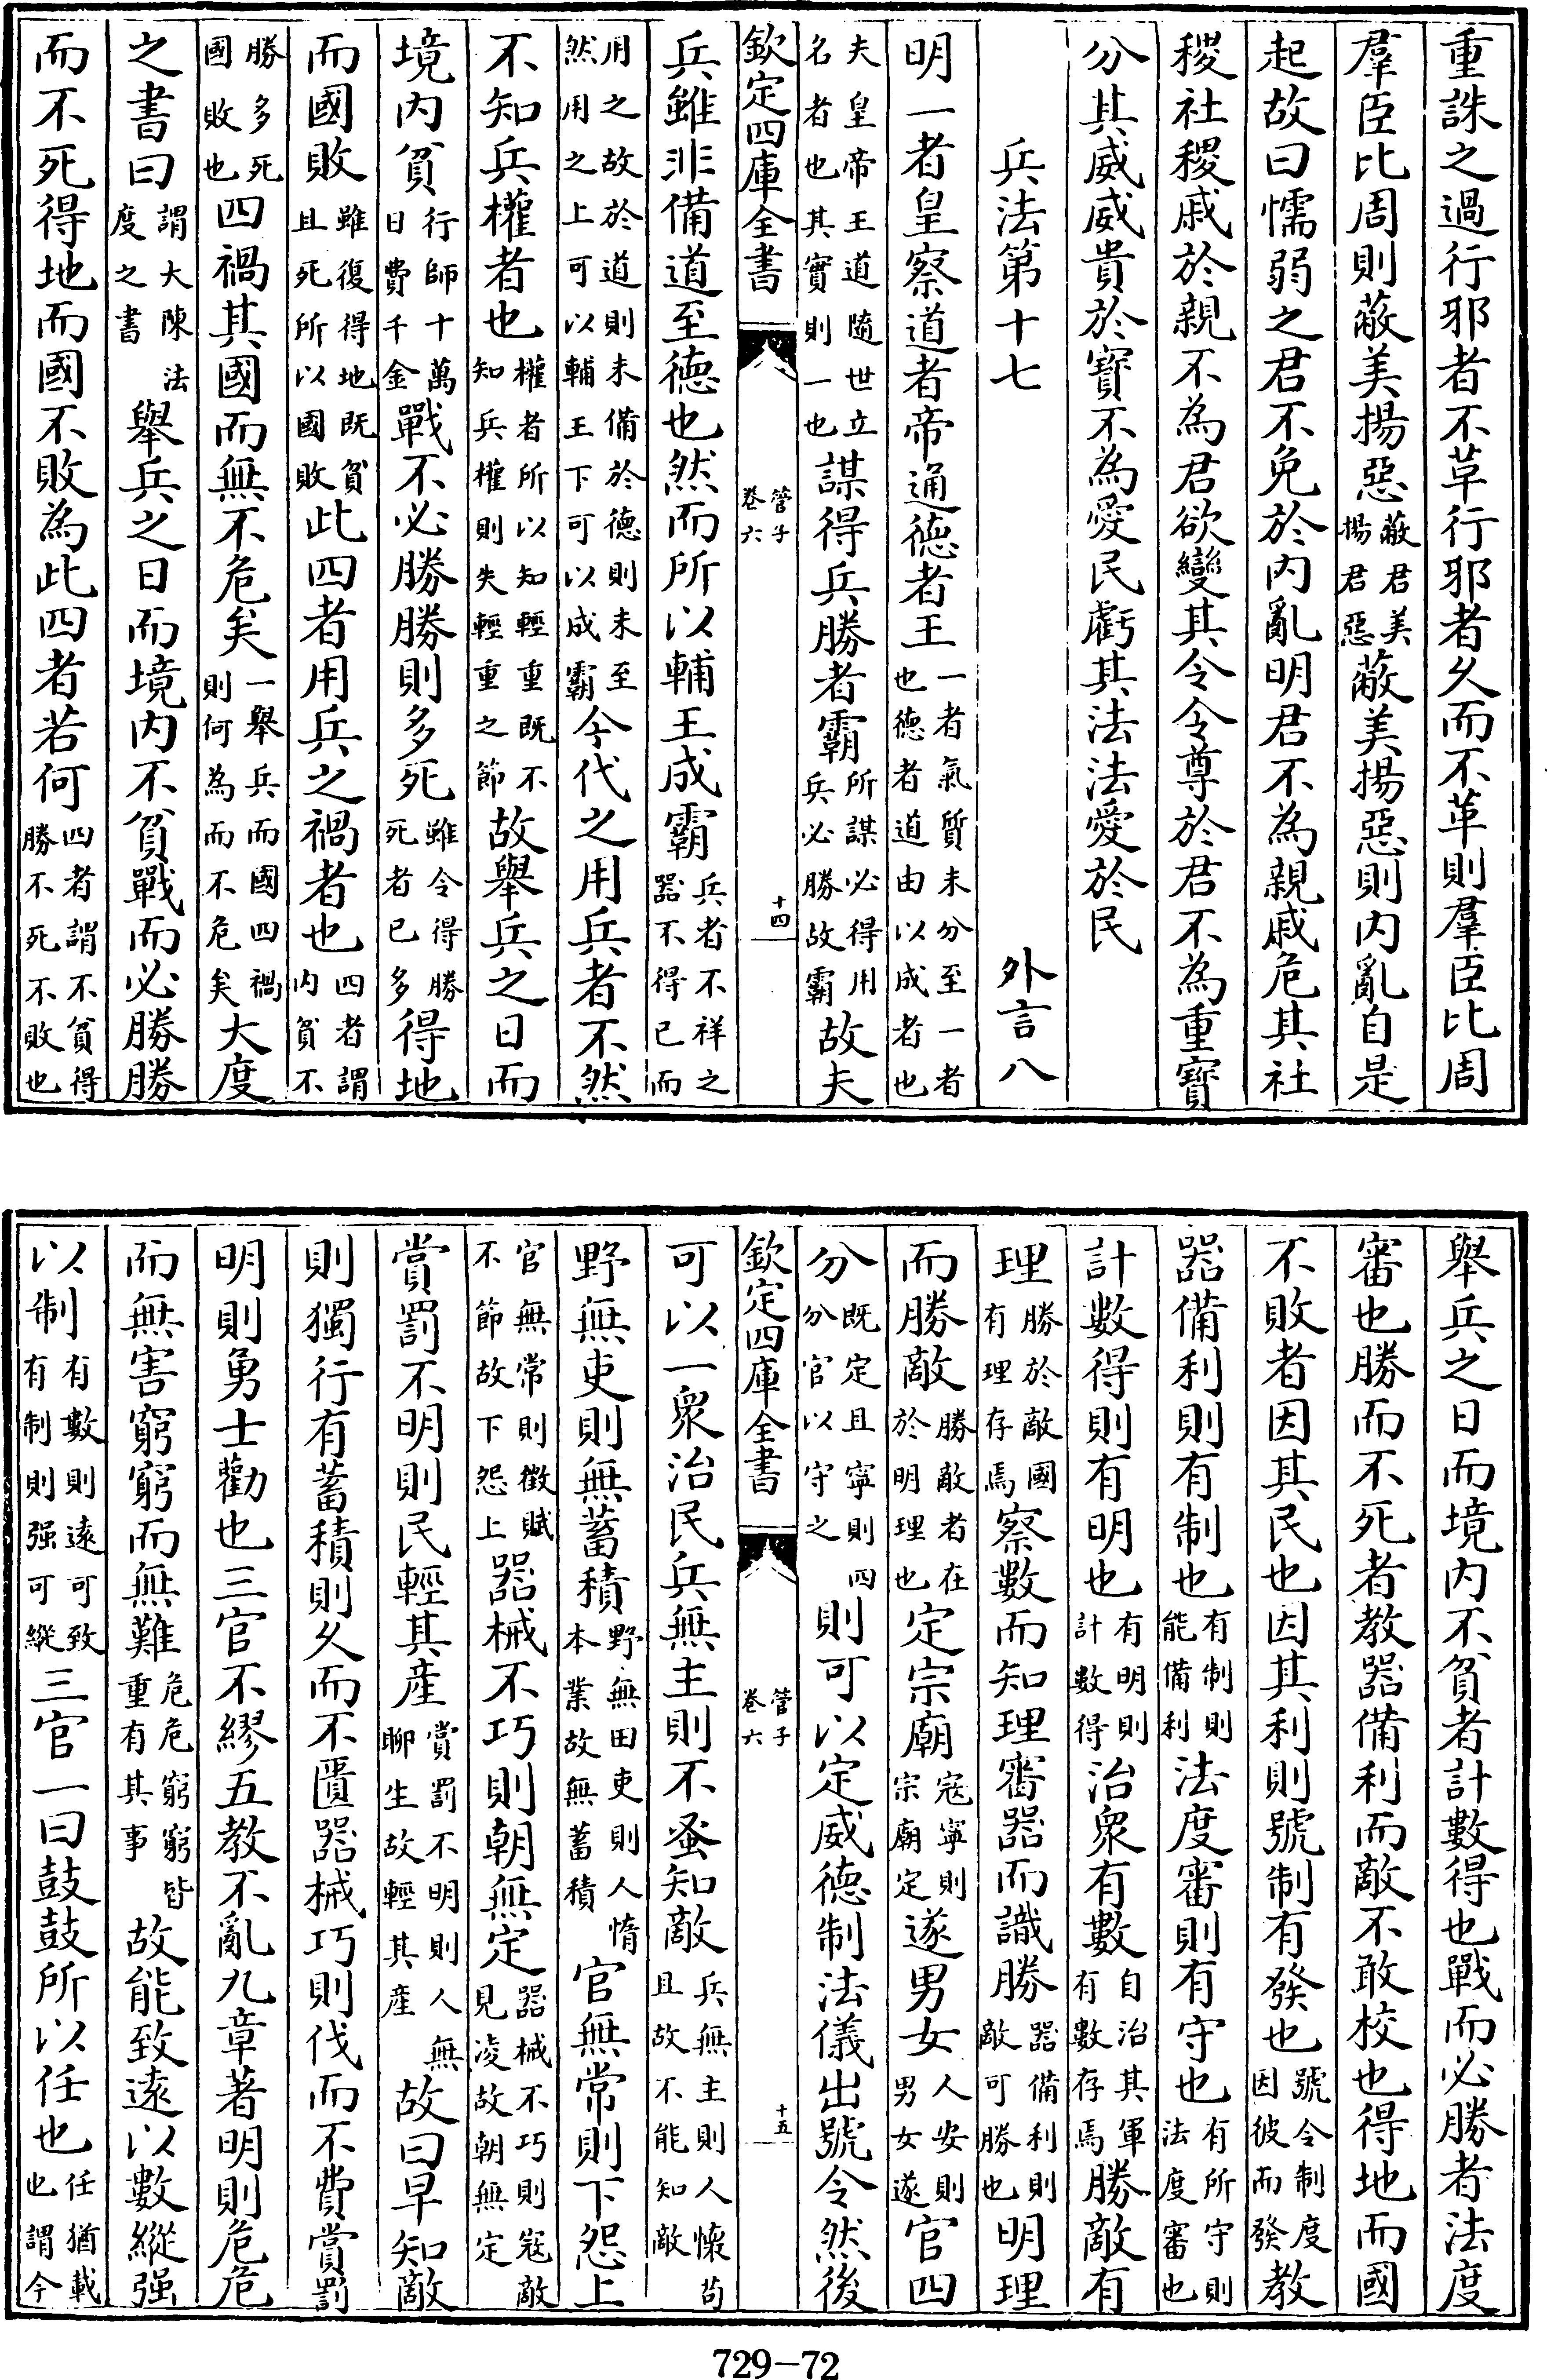 重誅之過行邪者不革行邪者久而不革則羣臣比周
羣臣比周則蔽美揚惡蔽君美揚君惡蔽美揚惡則内亂自是
起故曰懦弱之君不免於内亂明君不為親戚危其社
稷社稷戚於親不為君欲變其令令尊於君不為重寳
分其威威貴於寳不為愛民虧其法法愛於民
兵法第十七 外言八
明一者皇察道者帝通徳者王一者氣質未分至一者也徳者道由以成者也
夫皇帝王道隨世立名者也其實則一也謀得兵勝者霸所謀必得用兵必勝故霸故夫
欽定四庫全書 管子卷六 十四
兵雖非備道至徳也然而所以輔王成霸兵者不祥之器不得已而
用之故於道則未備於徳則未至然用之上可以輔王下可以成霸今代之用兵者不然
不知兵權者也權者所以知輕重既不知兵權則失輕重之節故舉兵之日而
境内貧行師十萬日費千金戰不必勝勝則多死雖令得勝死者已多得地
而國敗雖復得地既貧且死所以國敗此四者用兵之禍者也四者謂内貧不
勝多死國敗也四禍其國而無不危矣一舉兵而國四禍則何為而不危矣大度
之書曰謂大陳法度之書舉兵之日而境内不貧戰而必勝勝
而不死得地而國不敗為此四者若何四者謂不貧得勝不死不敗也
舉兵之日而境内不貧者計數得也戰而必勝者法度
審也勝而不死者教器備利而敵不敢校也得地而國
不敗者因其民也因其利則號制有發也號令制度因彼而發教
器備利則有制也有制則能備利法度審則有守也有所守則法度審也
計數得則有明也有明則計數得治衆有數自治其軍有數存焉勝敵有
理勝於敵國有理存焉察數而知理審器而識勝器備利則敵可勝也明理
而勝敵勝敵者在於明理也定宗廟寇寧則宗廟定遂男女人安則男女遂官四
分既定且寧則四分官以守之則可以定威德制法儀出號令然後
欽定四庫全書 管子卷六 十五
可以一衆治民兵無主則不蚤知敵兵無主則人懐苟且故不能知敵
野無吏則無蓄積野無田吏則人惰本業故無蓄積官無常則下怨上
官無常則徵賦不節故下怨上器械不巧則朝無定器械不巧則寇敵見凌故朝無定
賞罰不明則民輕其產賞罰不明則人無聊生故輕其產故曰早知敵
則獨行有蓄積則久而不匱器械巧則伐而不費賞罰
明則勇士勸也三官不繆五教不亂九章著明則危危
而無害窮窮而無難危危窮窮皆重有其事故能致遠以數縱强
以制有數則遠可致有制則强可縱三官一曰鼓鼓所以任也任猶載也謂今
729-72